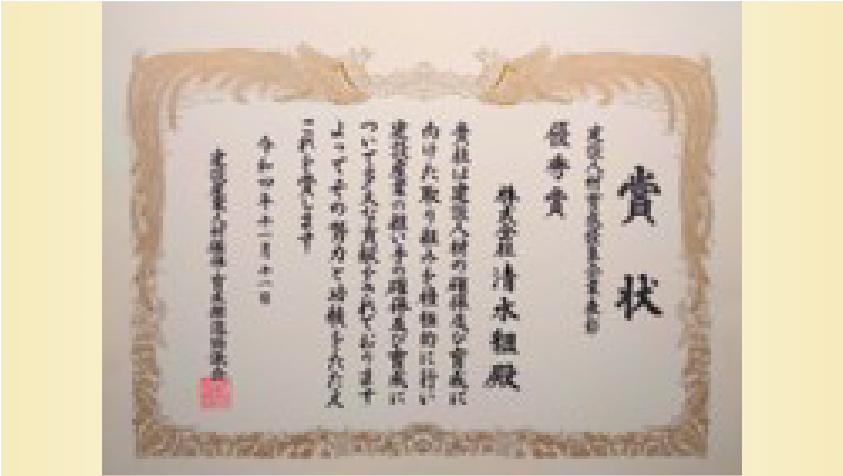 賞状
建設人材育成優良企業表彰
優秀賞
株式会社 清水組 殿
貴社は建設人材の確保及び育成に
向けた取り組みを積極的に行い
建設産業の担い手の確保及び育成に
ついて多大な貢献をされております
よってその努力と功績をたたえ
これを賞します
令和四年十一月十一日
建設産業人材確保・育成推進協議会